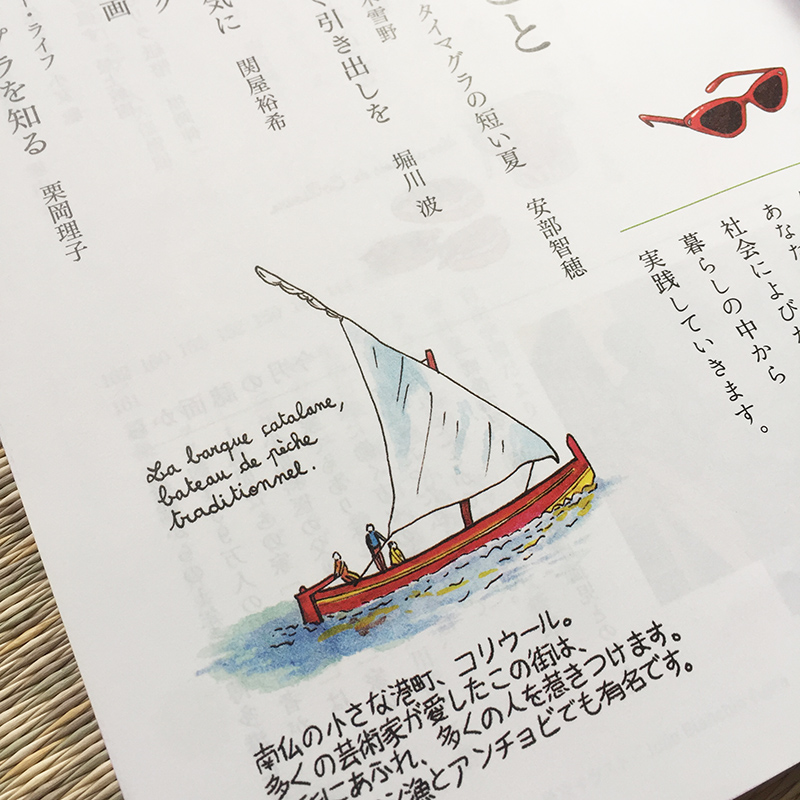 こと
タイマグラの短い夏
安部智穂
雪野
く引き出しを
堀川 波
気に
関屋裕希
画
ー・ライフ
を知る
栗岡理子
あなた
社会によびか
暮らしの中から
実践していきます。
La barque catalane,
bateau de pêche
traditionnel.
南仏の小さな港町、コリウール。
多くの芸術家が愛したこの街は、
にあふれ、多くの人を惹きつけます。
ン漁とアンチョビでも有名です。